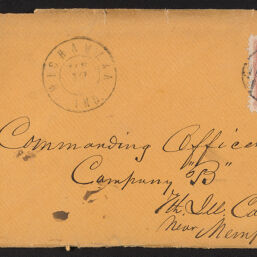 MISHAWAKA
IND.
Commanding Office
Company "B"
7th Ill. Ca
Near Memp